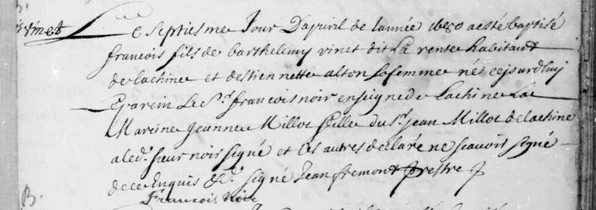 B.
vinet
Le septiesme Jour D'apvril de l'année 1680 a esté baptisé
francois fils de barthelemy vinet dit La rente habitant
de lachine et destiennette alton sa femme né cejourdhuj
Le parein Le Sr. francois noir enseigne de Lachine La
Mareine Jeanne Millot fille du Sr. Jean Millot de lachine
a led. sieur noir signé et les autres declaré ne scavoir signé
de ce Enquis &c. signé Jean fremont prestre
Francois Noir
B.